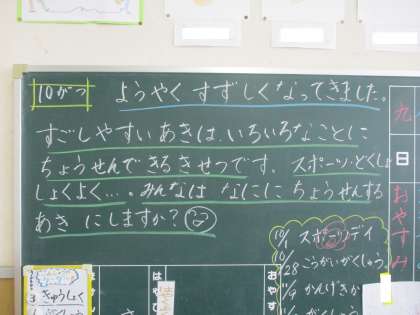 10がつ
ようやく すずしくなってきました。
すごしやすい あきは、いろいろなことに
ちょうせんできるきせつです。スポーツ・どくしょ
しょくよく…。みんなは なにに ちょうせんする
あき にしますか?
10/1 スポーツデイ
10/28 こうがいがくしゅう
11/9 かんげきか
がくしゅう
九
日
おやすみ
きゅうしょく
はや
おやす